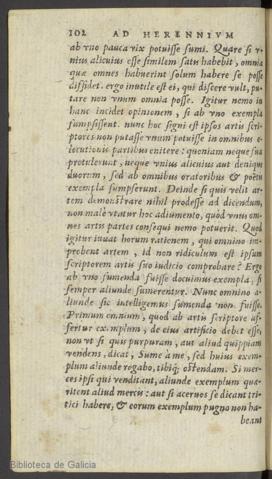 102 AD HERENNIVM
ab vno pauca vix potuisse sumi. Quare si v-
nius alicuius esse similem satis habebit, omnia
quæ omnes habuerint solum habere se posse
diffidet. ergo inutile est ei, qui discere vult, pu-
tare vnum omnia posse. Igitur nemo in
hanc incidet opinionem, si ab vno exempla
sumpsissent. nunc hoc signi est ipsos artis scri-
ptores non putasse vnum potuisse in omnibus e-
locutionis partibus enitere: quoniam neque sua
protulerunt, neque vnius alicuius aut denique
duorum, sed ab omnibus oratoribus & poëtis
exempla sumpserunt. Deinde si quis velit ar-
tem demonstrare nihil prodesse ad dicendum,
non malè vtatur hoc adiumento, quòd vnus om-
nes artis partes consequi nemo potuerit. Quod
igitur iuuat horum rationem, qui omnino im-
probent artem, id non ridiculum est ipsum
scriptorem artis suo iudicio comprobare? Ergo
ab vno sumenda fuisse docuimus exempla, si
semper aliunde sumerentur. Nunc omnino a-
liunde sic intelligemus sumenda non fuisse.
Primum omnium, quod ab artis scriptore af-
fertur exemplum, de eius artificio debet esse,
non vt si quis purpuram, aut aliud quippiam
vendens, dicat, Sume à me, sed huius exem-
plum aliunde rogabo, tibiq; ostendam. Si mer-
ces ipsi qui venditant, aliunde exemplum quæ-
ritent aliud mercis: aut si aceruos se dicant tri-
tici habere, & eorum exemplum pugno non ha-
beant
Biblioteca de Galicia